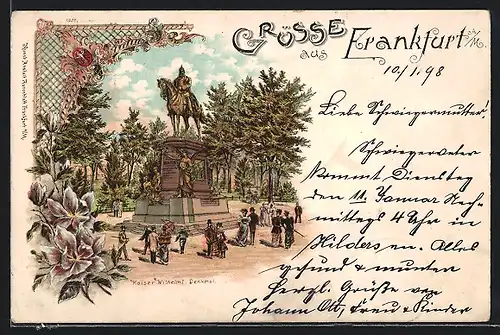 GRÜSSE
aus
Frankfurt a/M.
10/1.98
Liebe Schwiegermutter!
Schwiegervater
kommt Dienstag
den 11. Januar Nach-
mittags 4 Uhr in
Hilders an. Alles
gesund & munter
herzl. Grüße von
Johann Ott, Frau & Kinder
"Kaiser Wilhelm" Denkmal.